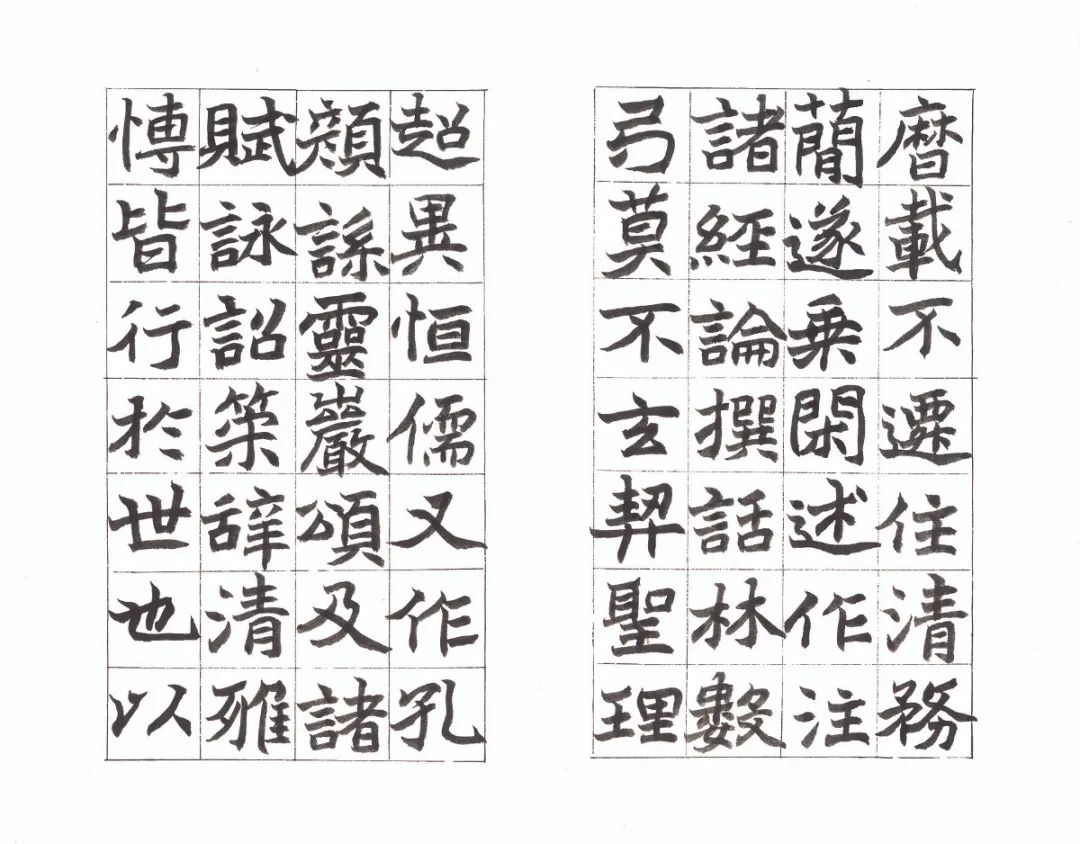 曆載不遷住清務
蕳遂乗閑述作注
諸經論撰話林數
弓莫不玄契聖理
超異恒儒又作孔
顏繇靈巖頌及諸
賦詠詔築辞清雅
愽皆行於世也以